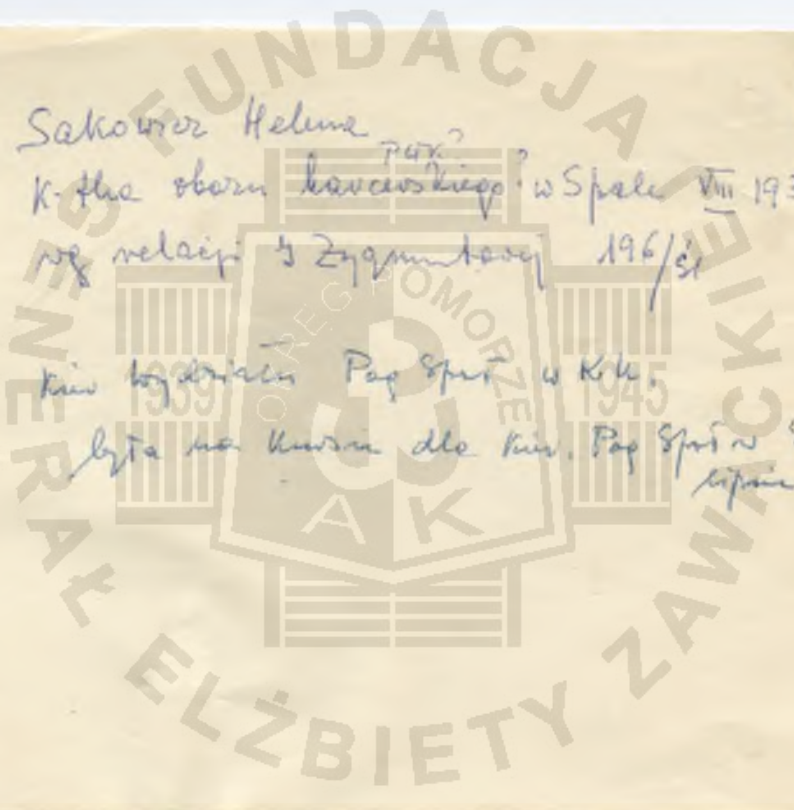 Sakowicz Helena
PWK?
K-tka obozu harcerskiego? w Spale VIII 193
wg relacji J Zygmuntowej 196/śl
Kier Wydziału Pog Społ w K-dk.
była na kursie dla kier. Pog Społ w
lipiec
FUNDACJA
GENERAŁ ELŻBIETY ZAWACKIEJ
OKRĘG POMORZE
1939
1945
AK